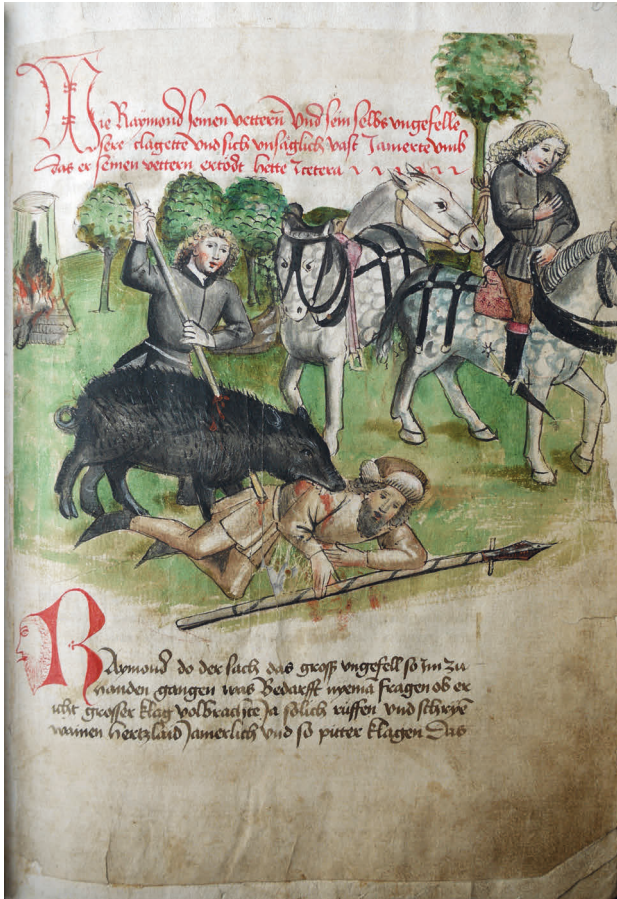 Wie Raymond seinen vettern Vnd sein selbs vngefelle
sere clagette vnd sich vnsäglich vast Jamerte vmb
das er seinen vettern ertödt hette Jcetera
RAymond do der sach das groß vngefell so jm zu
handen gangen was Bedarfft nyemā fragen ob er
icht grosser klag volbrachte Ja sölich rüffen vnd schryē
wainen Hertzlaid Jämerlich vnd so pitter klagen Das